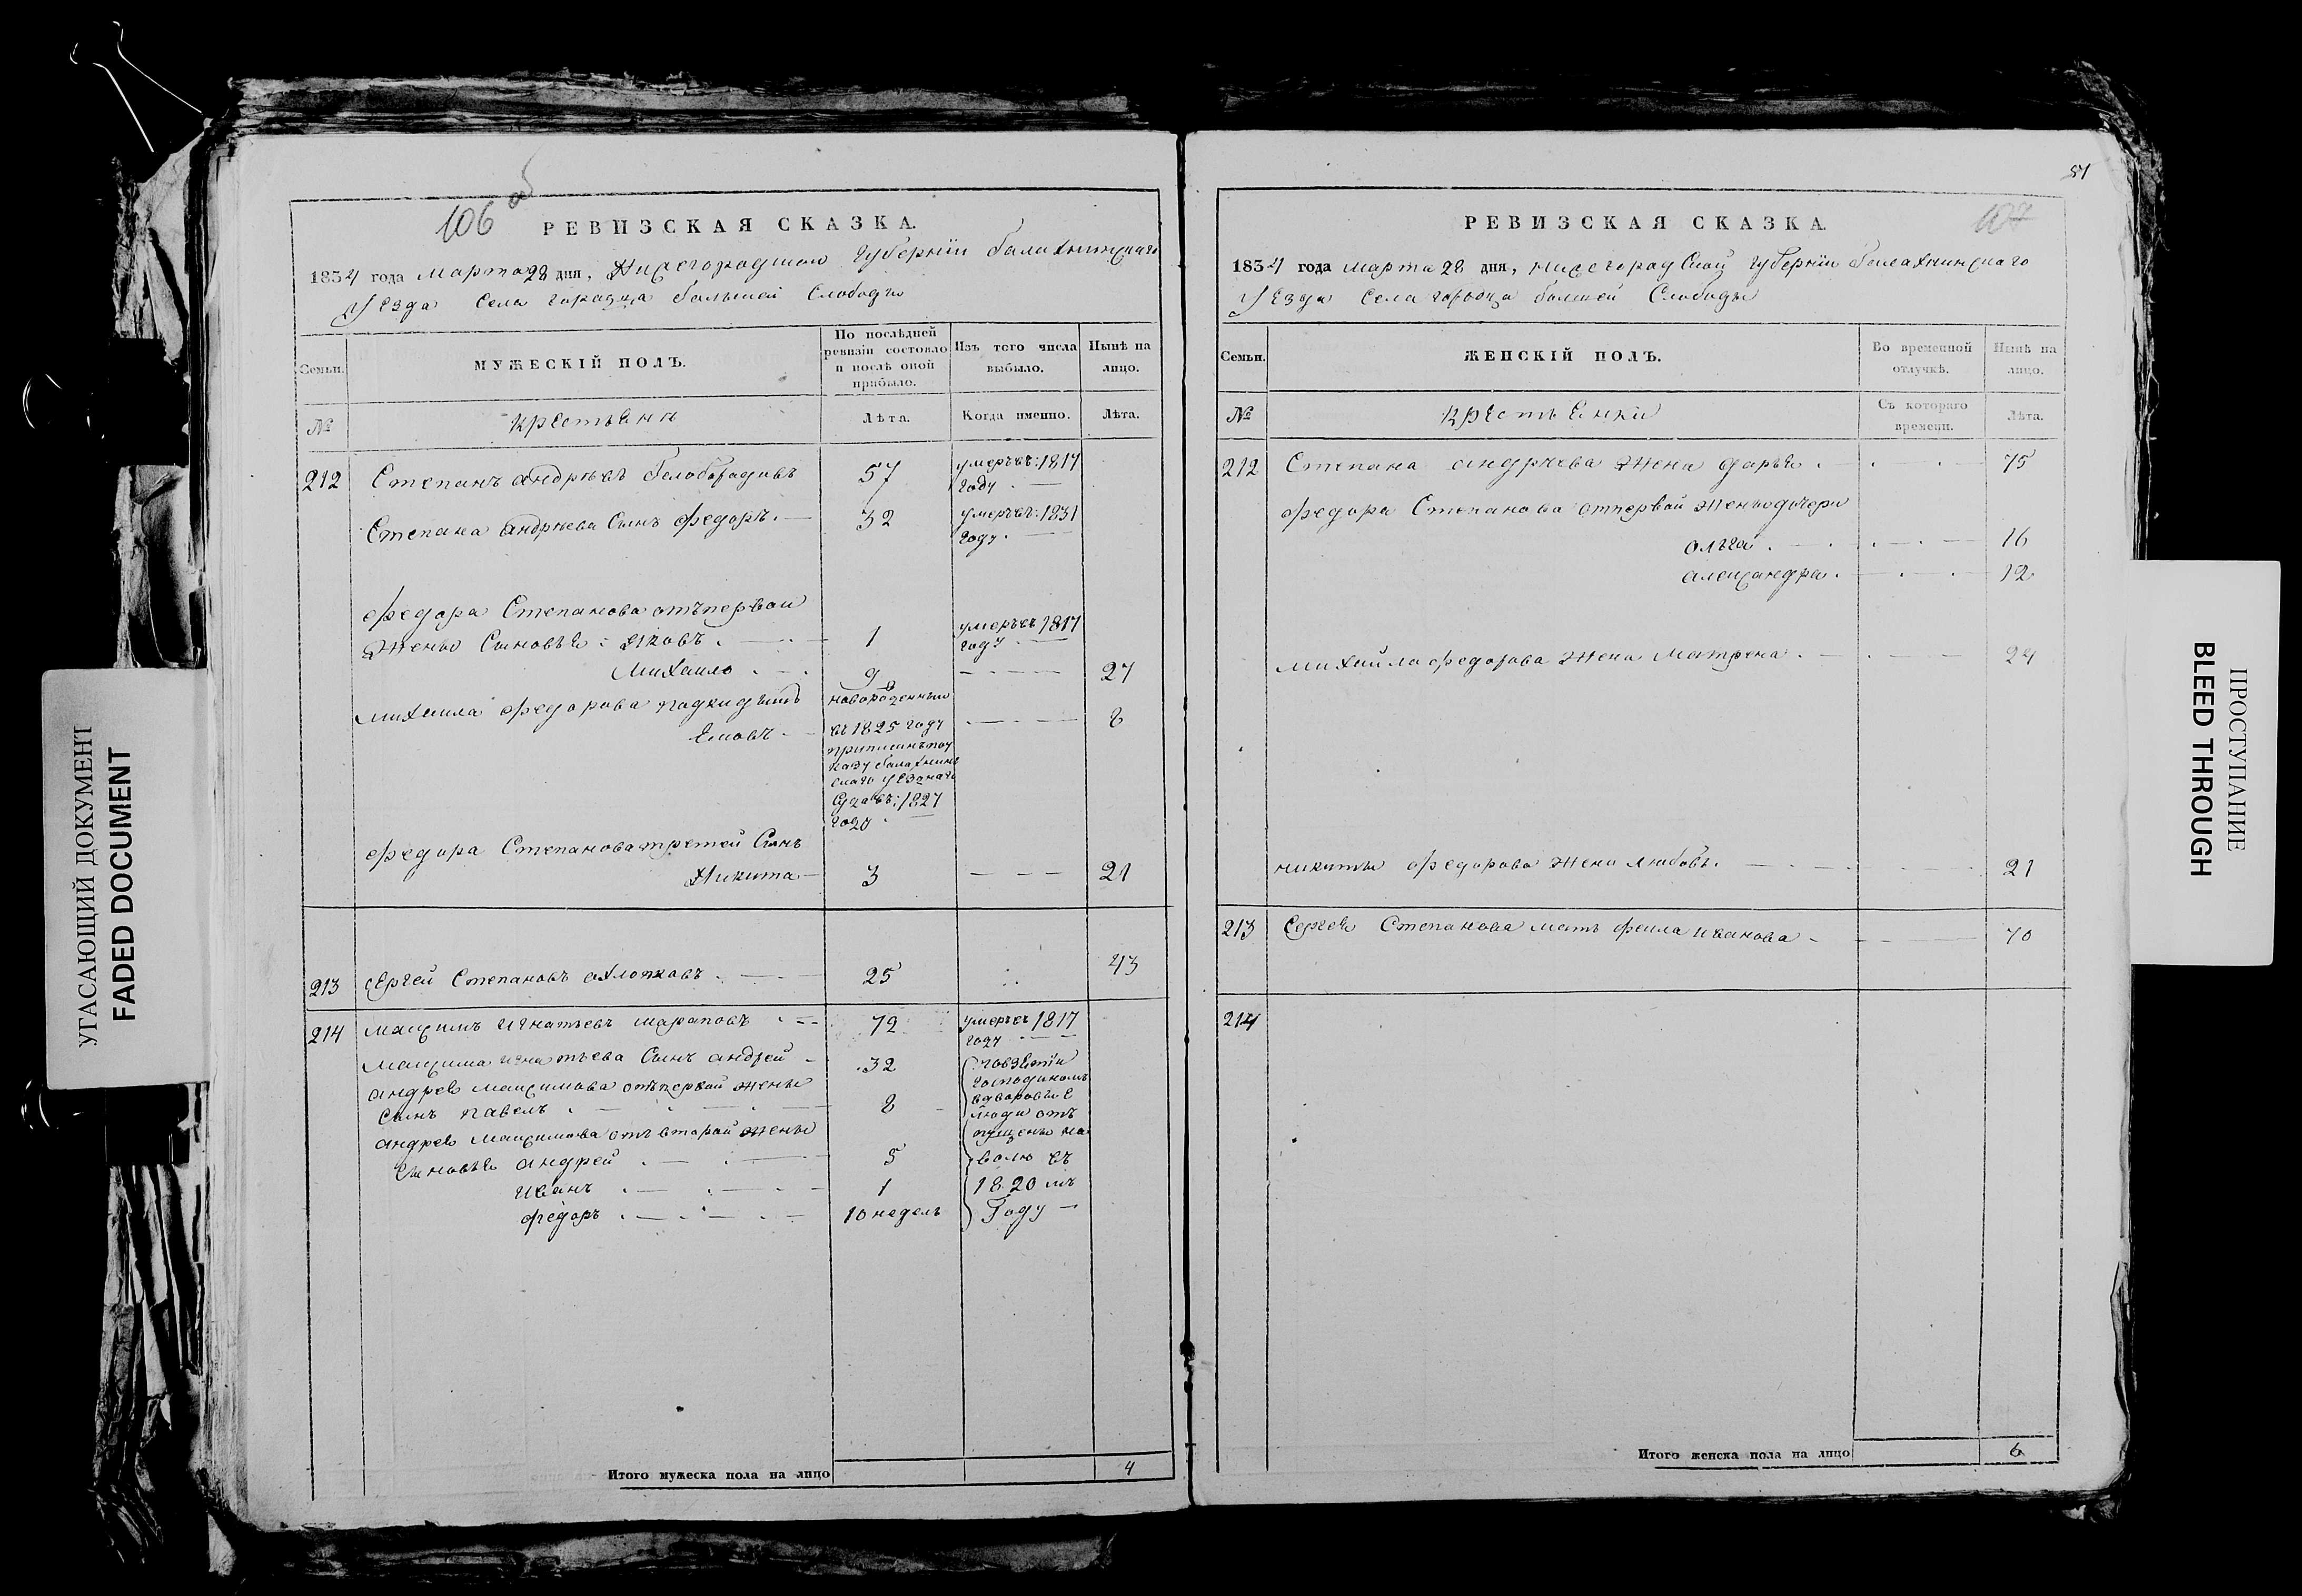 106 об
РЕВИЗСКАЯ СКАЗКА.
1834 года марта 28 дня, Нижегородской губернїи балахнинскаго
уезда села городца большей слободы
Семьи.
МУЖЕСКІЙ ПОЛЪ.
По послѣдней ревизіи состояло и послѣ оной прибыло.
Изъ того числа выбыло.
Нынѣ на лицо.
№
крестьяня
Лѣта.
Когда именно.
Лѣта.
212 Степанъ андрѣевъ белобрадовъ 57 умеръ въ: 1817
году
Степана андрѣева сынъ федоръ. 32 умеръ въ: 1831
году.
федора Степанова отъ первои
жены сыновья: яковъ. 1 умеръ въ 1817
году
михаило 9 27
михаила федорова подкидышъ новорожденный
въ 1825 году 8
приписанъ поу
казу балахнин
скаго уезднаго
суда въ: 1827
году
федора Степанова третей сынъ
Никита 3 21
213 сергей Степановъ охлопковъ. 25 43
214 максимъ игнатьевъ 72 умеръ въ 1817
году
максима игнатьева сынъ андрей 32
андрея максимова отъ первой жены
сынъ павелъ 8
андрея максимова отъ второй жены
сыновья андрей 5
иванъ 1
федоръ 10 недель
господиномъ
в дворовые
люди от
пущены на
волю въ
1820 мъ
Году
Итого мужеска пола на лицо 4
51
107
РЕВИЗСКАЯ СКАЗКА.
1834 года марта 28 дня, нижегородской губернїи балахнинскаго
уезда села городца болшей слободы
Семьи.
ЖЕНСКІЙ ПОЛЪ.
Во временной отлучкѣ.
Нынѣ на лицо.
№
крестьянки
Съ котораго времени.
Лѣта.
212 Степана андрѣева жена дарья. 75
федора Степанова от первой жены дочери
ольга. 16
александра. 12
михайла федорова жена матрена. 24
никиты федорова жена любовь. 21
213 Сергея Степанова мать фекла иванова 70
214
Итого женска пола на лицо 6
УГАСАЮЩИЙ ДОКУМЕНТ
FADED DOCUMENT
ПРОСТУПАНИЕ
BLEED THROUGH